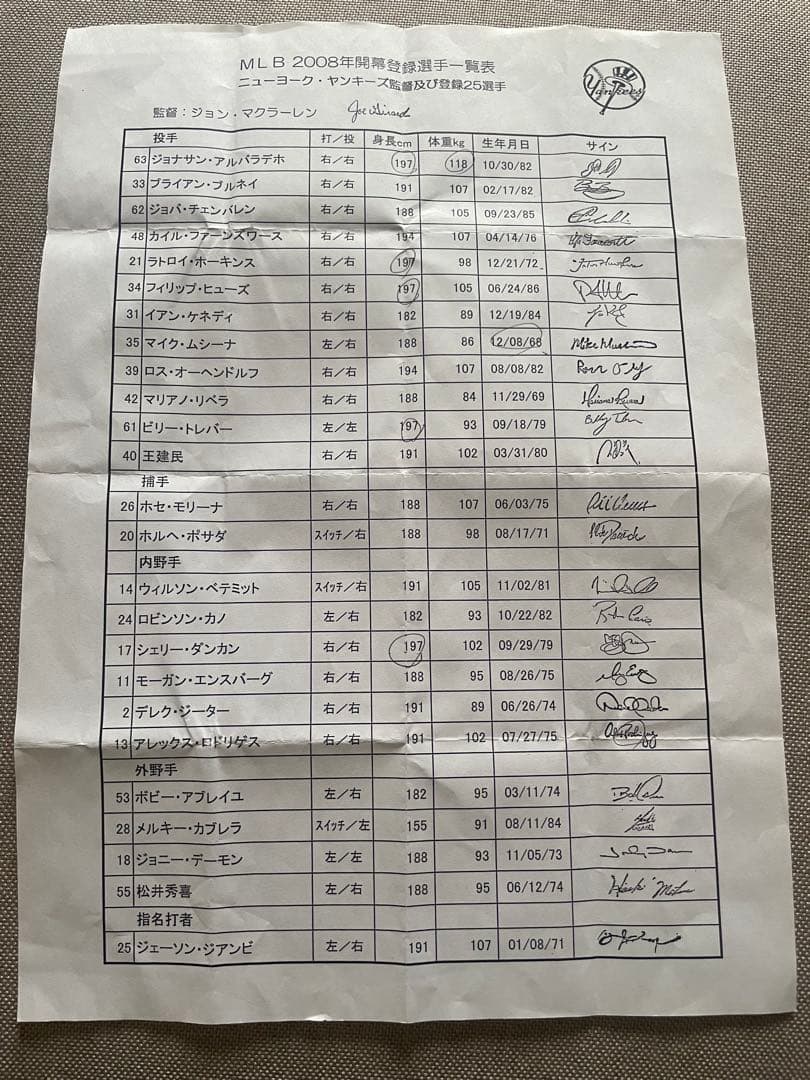 MLB 2008年開幕登録選手一覧表
ニューヨーク・ヤンキーズ監督及び登録25選手
Yankees
監督：ジョン・マクラーレン Joe Girardi
投手 打／投 身長cm 体重kg 生年月日 サイン
63 ジョナサン・アルバラデホ 右／右 197 118 10/30/82
33 ブライアン・ブルネイ 右／右 191 107 02/17/82
62 ジョバ・チェンバレン 右／右 188 105 09/23/85
48 カイル・ファーンズワース 右／右 194 107 04/14/76
21 ラトロイ・ホーキンス 右／右 197 98 12/21/72
34 フィリップ・ヒューズ 右／右 197 105 06/24/86
31 イアン・ケネディ 右／右 182 89 12/19/84
35 マイク・ムシーナ 左／右 188 86 12/08/68 Mike Mussina
39 ロス・オーヘンドルフ 右／右 194 107 08/08/82
42 マリアノ・リベラ 右／右 188 84 11/29/69 Mariano Rivera
61 ビリー・トレバー 左／左 197 93 09/18/79
40 王建民 右／右 191 102 03/31/80
捕手
26 ホセ・モリーナ 右／右 188 107 06/03/75
20 ホルヘ・ポサダ スイッチ／右 188 98 08/17/71
内野手
14 ウィルソン・ベテミット スイッチ／右 191 105 11/02/81
24 ロビンソン・カノ 左／右 182 93 10/22/82
17 シェリー・ダンカン 右／右 197 102 09/29/79
11 モーガン・エンスバーグ 右／右 188 95 08/26/75
2 デレク・ジーター 右／右 191 89 06/26/74
13 アレックス・ロドリゲス 右／右 191 102 07/27/75
外野手
53 ボビー・アブレイユ 左／右 182 95 03/11/74
28 メルキー・カブレラ スイッチ／左 155 91 08/11/84
18 ジョニー・デーモン 左／左 188 93 11/05/73
55 松井秀喜 左／右 188 95 06/12/74
指名打者
25 ジェーソン・ジアンビ 左／右 191 107 01/08/71